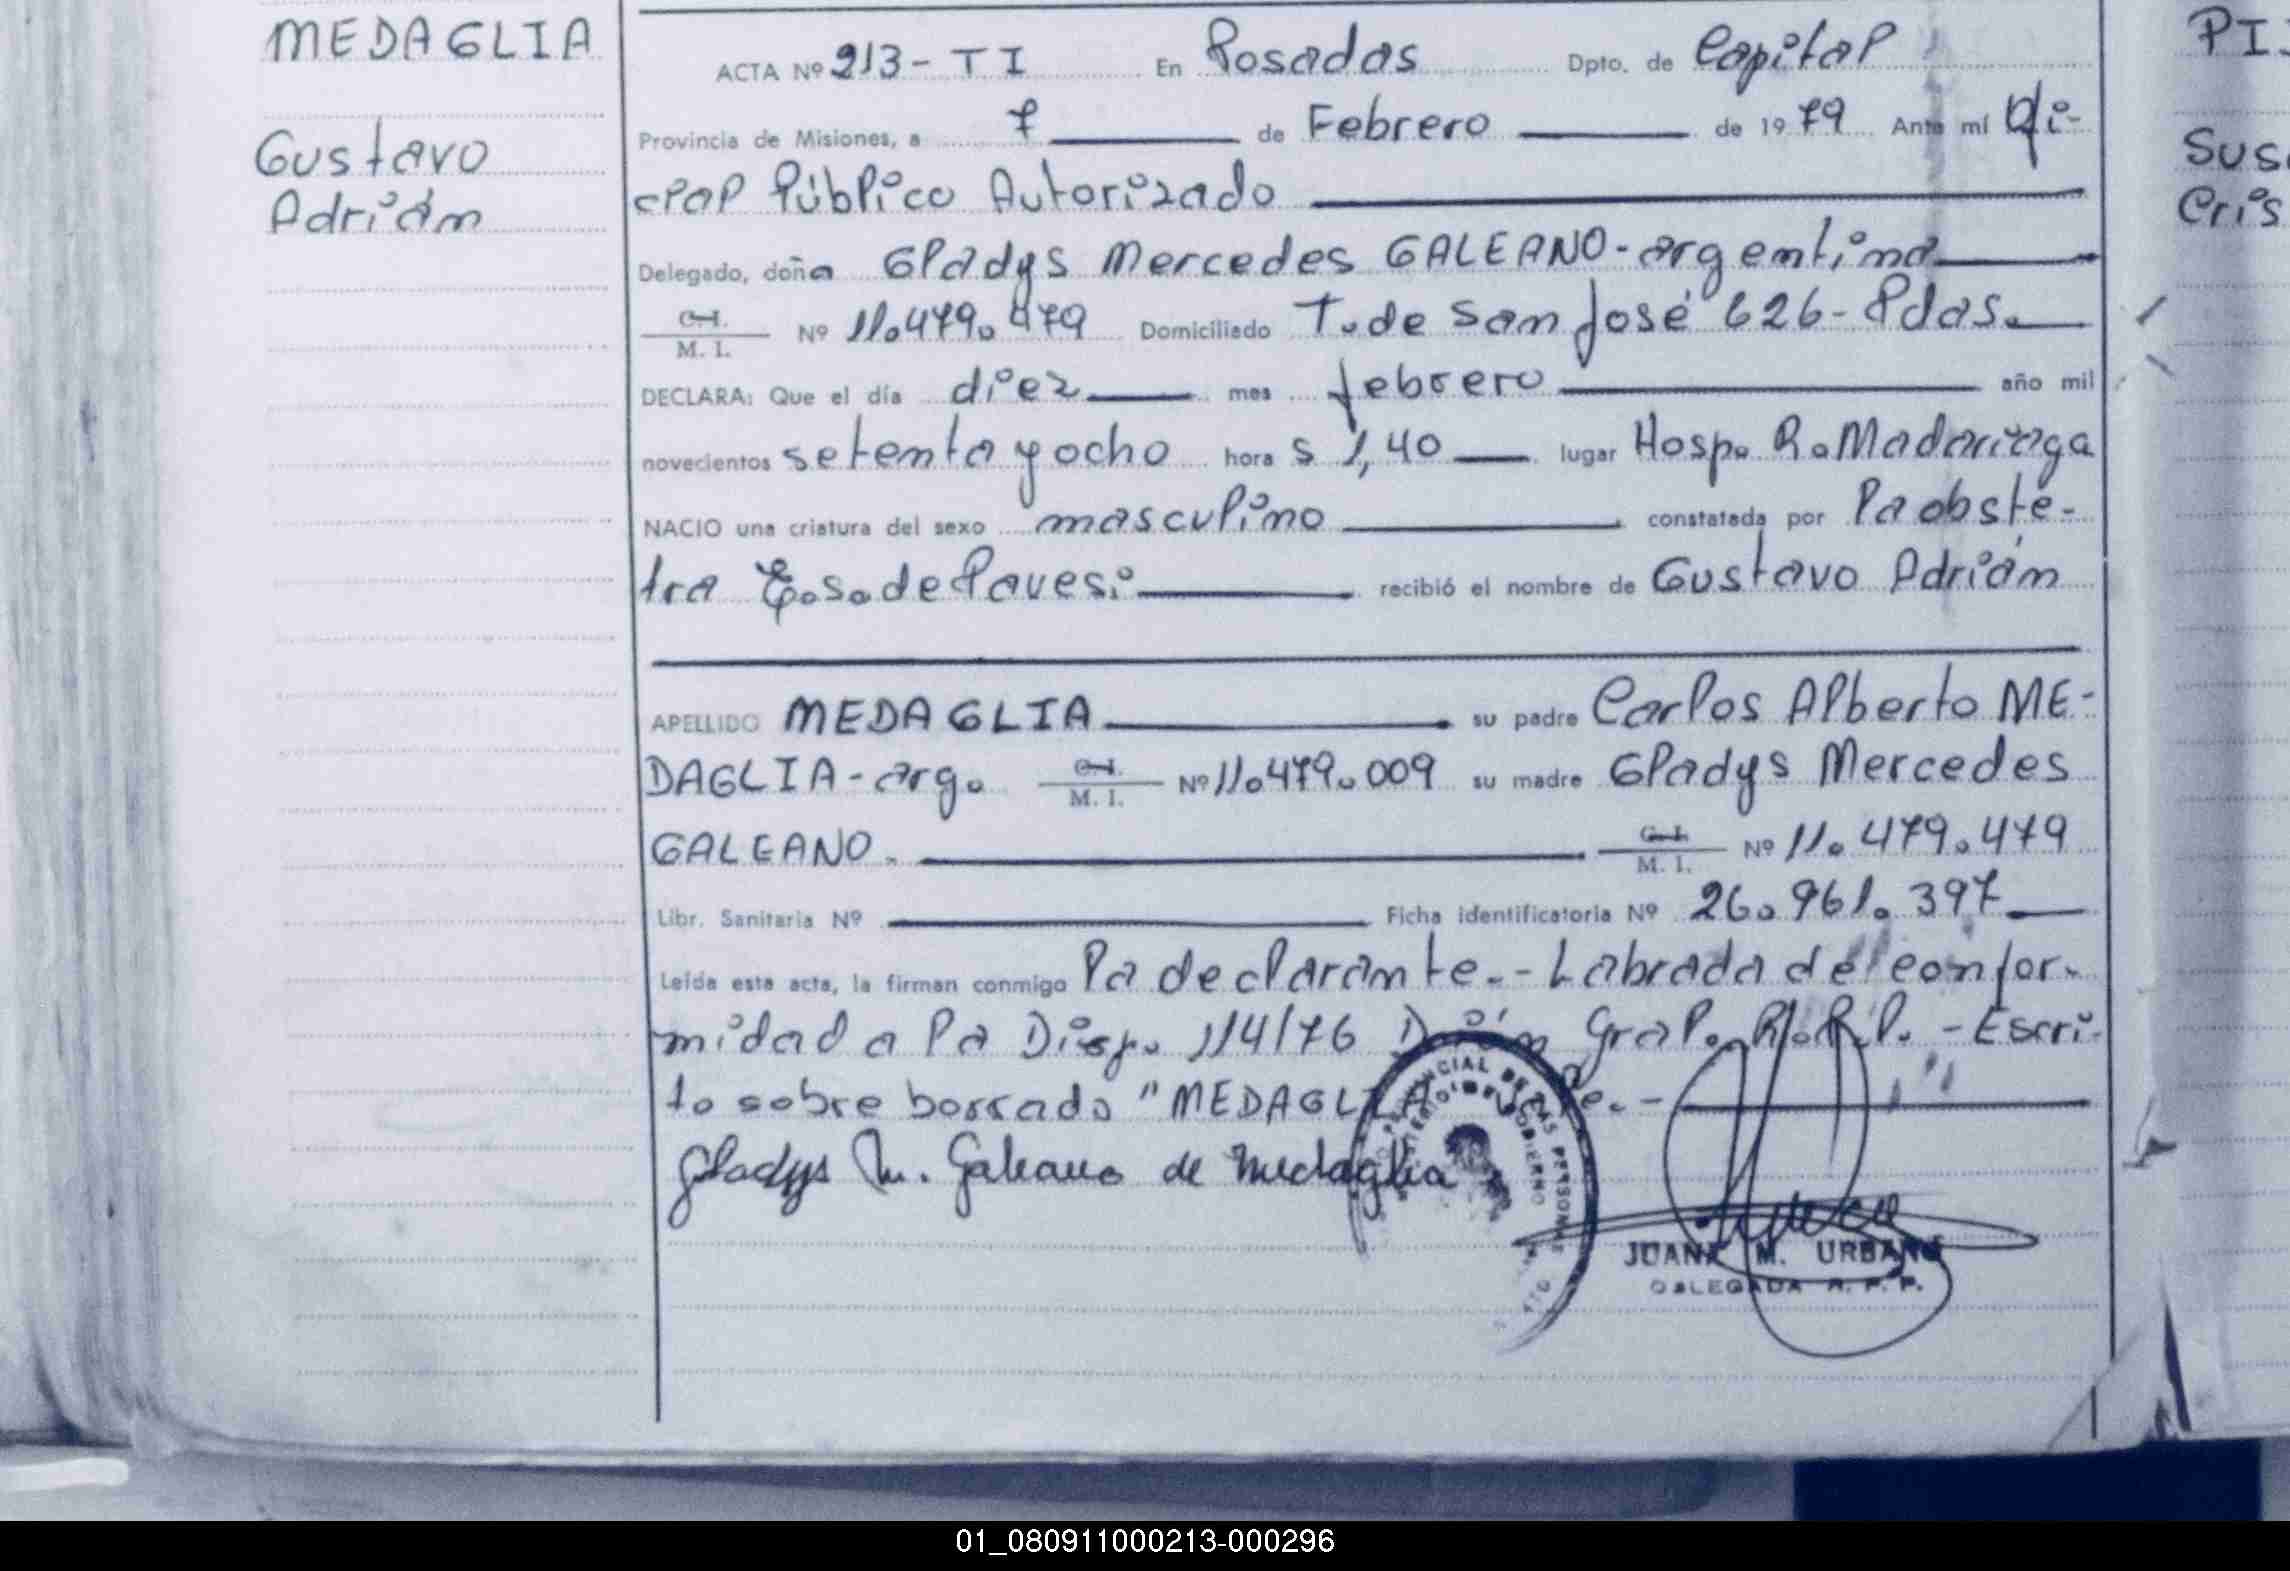 MEDAGLIA
Gustavo
Adrián
ACTA Nº 213 - T I En Posadas Dpto. de Capital
Provincia de Misiones, a 7 de Febrero de 1979 Ante mí Ofi-
cial Público Autorizado
Delegado, doña Gladys Mercedes GALEANO - argentina
C. I.
M. I. Nº 11.479.479 Domiciliado T. de San José 626 - Pdas.
DECLARA: Que el día diez mes febrero año mil
novecientos setenta y ocho hora s 1,40 lugar Hosp. R. Madariaga
NACIO una criatura del sexo masculino constatada por la obste-
tra de Pavesi recibió el nombre de Gustavo Adrián
APELLIDO MEDAGLIA su padre Carlos Alberto ME-
DAGLIA - arg. C. I.
M. I. Nº 11.479.009 su madre Gladys Mercedes
GALEANO. C. I.
M. I. Nº 11.479.479
Libr. Sanitaria Nº Ficha identificatoria Nº 26.961.397
Leída esta acta, la firman conmigo la declarante. - Labrada de confor-
midad a la Disp. 114/76 Gral. - Escri-
to sobre borrado "MEDAGLIA
Gladys M. Galeano de Medaglia
JUANA M. URBANO
DELEGADA R. P. P.
PI
Sus
Cris
01_080911000213-000296